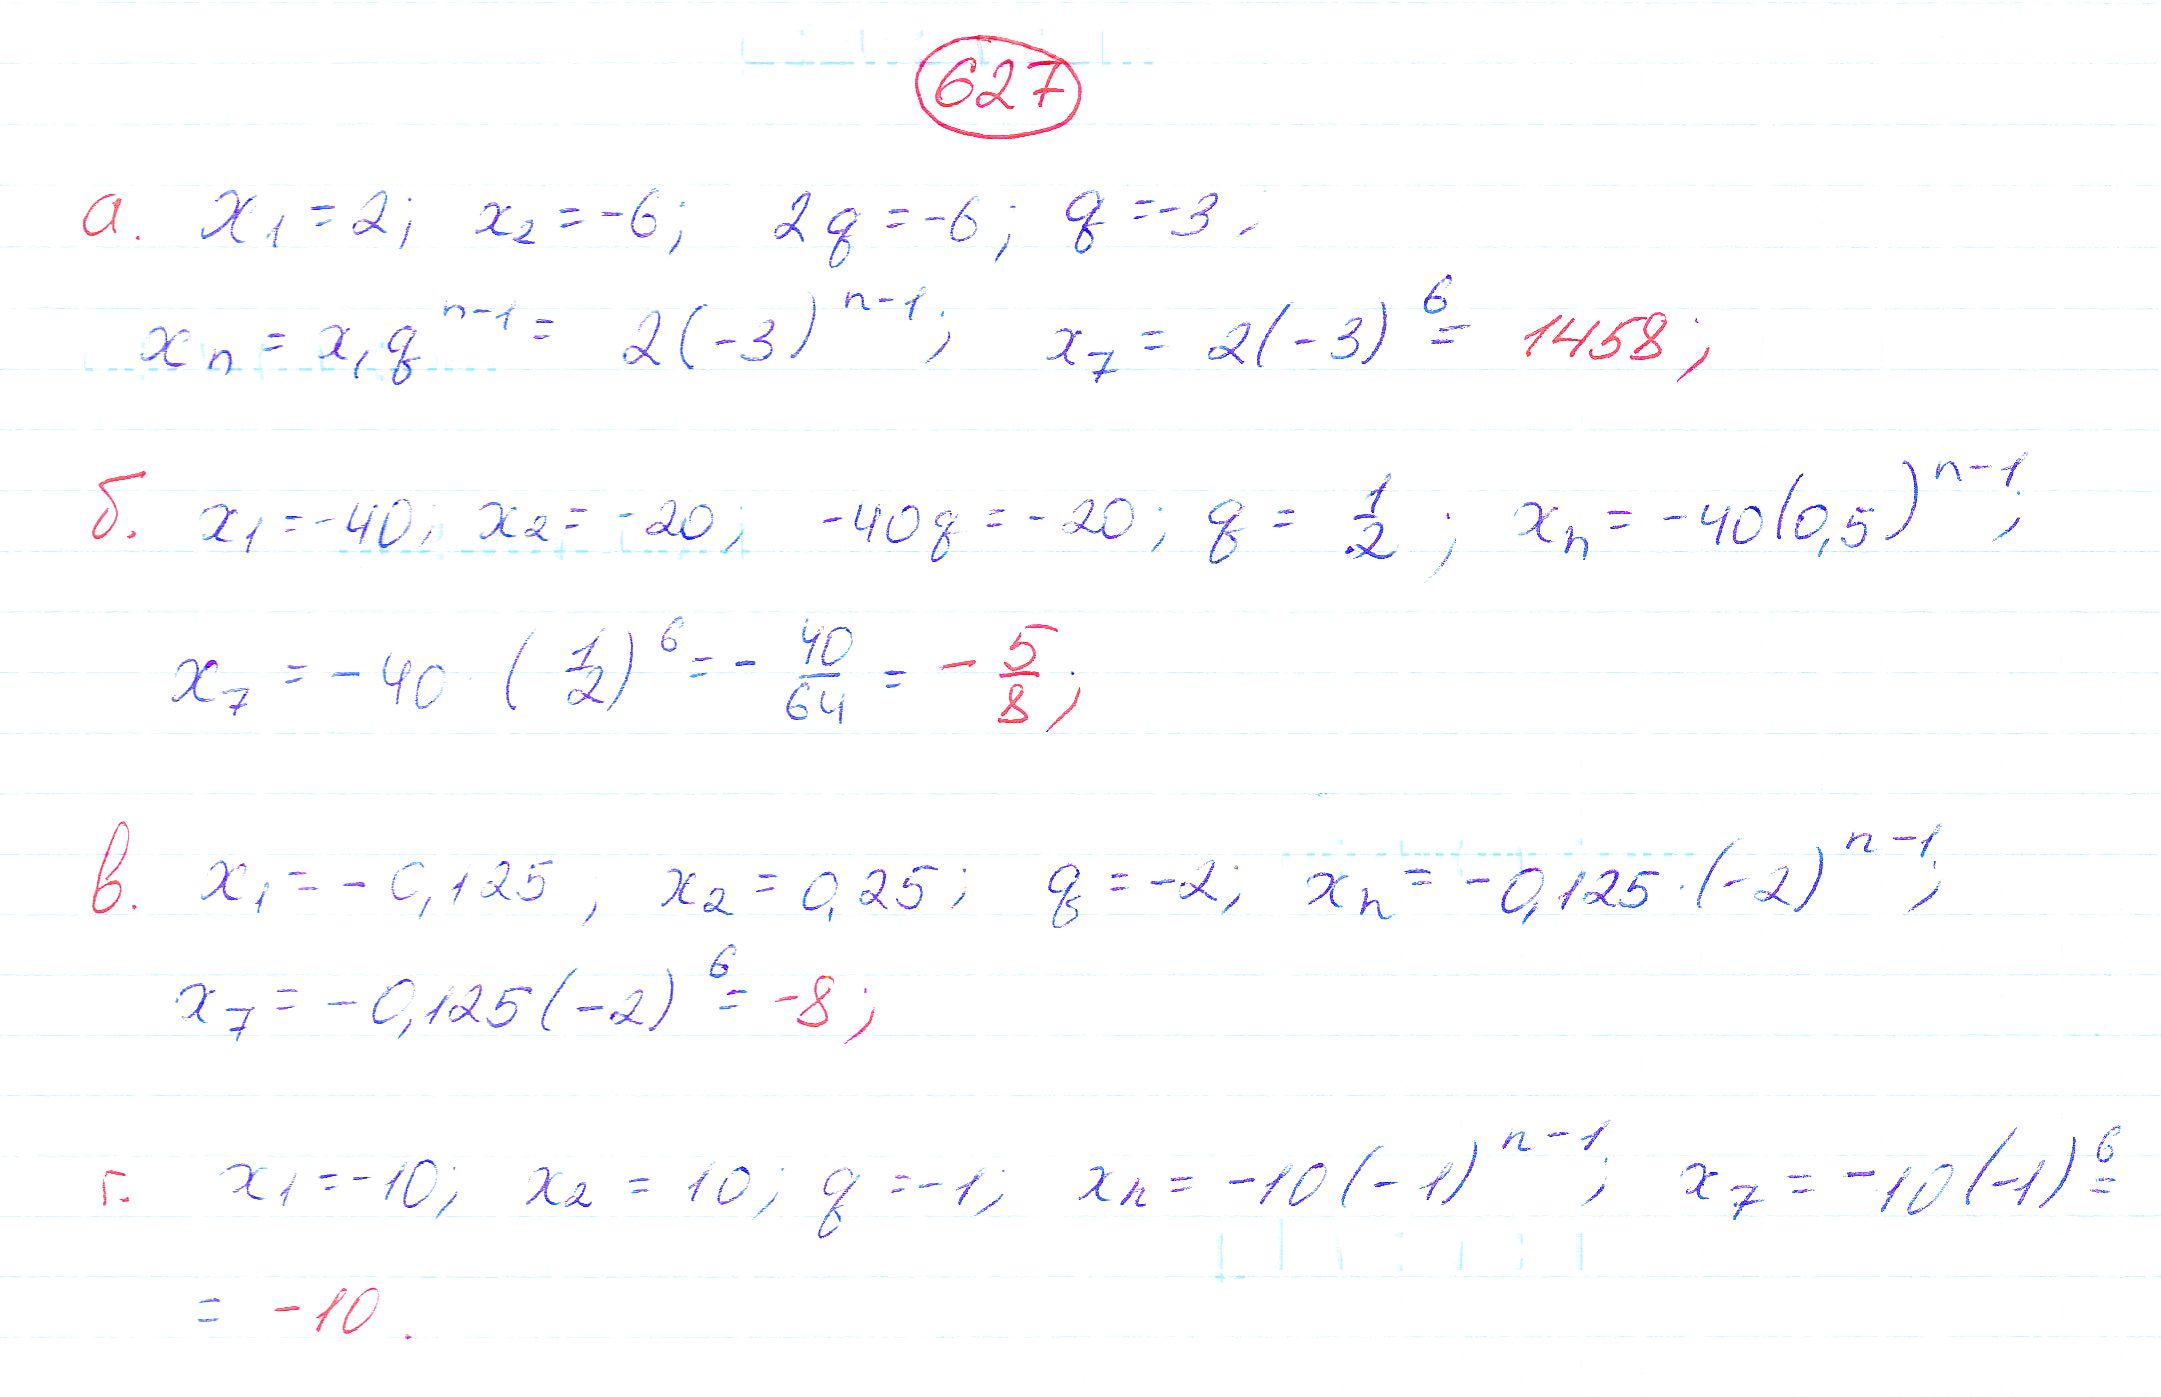 627
а. x₁ = 2; x₂ = -6; 2q = -6; q = -3.
xₙ = x₁qⁿ⁻¹ = 2(-3)ⁿ⁻¹; x₇ = 2(-3)⁶ = 1458;
б. x₁ = -40; x₂ = -20; -40q = -20; q = 1/2; xₙ = -40(0,5)ⁿ⁻¹;
x₇ = -40 · (1/2)⁶ = - 40/64 = - 5/8;
в. x₁ = -0,125; x₂ = 0,25; q = -2; xₙ = -0,125 · (-2)ⁿ⁻¹;
x₇ = -0,125(-2)⁶ = -8;
г. x₁ = -10; x₂ = 10; q = -1; xₙ = -10(-1)ⁿ⁻¹; x₇ = -10(-1)⁶ =
= -10.